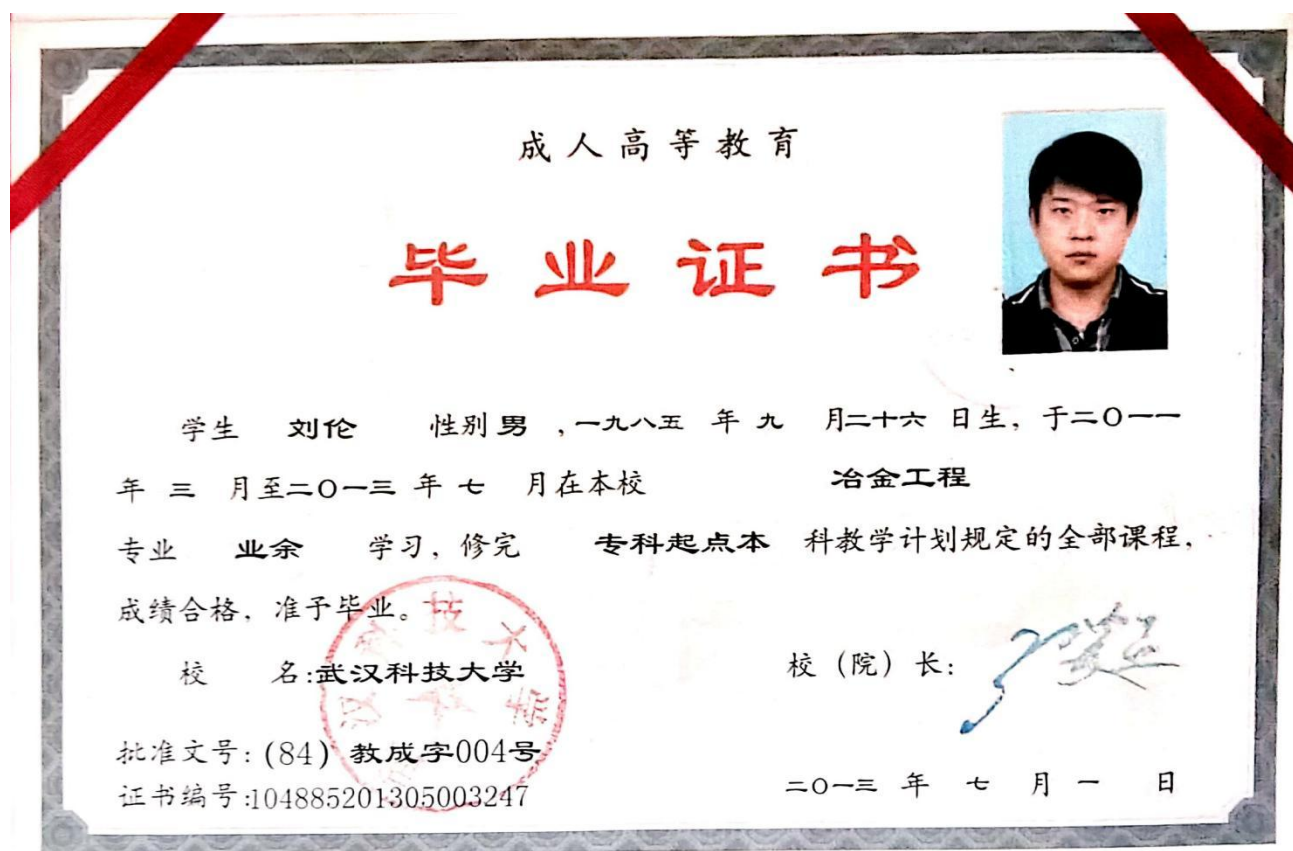 成人高等教育
毕业证书
学生 刘伦 性别 男 ,一九八五 年 九 月二十六 日生, 于二〇一一
年 三 月至二〇一三 年 七 月在本校 冶金工程
专业 业余 学习, 修完 专科起点本 科教学计划规定的全部课程,
成绩合格, 准予毕业。
校 名:武汉科技大学
校 (院) 长:
批准文号: (84) 教成字004号
证书编号:104885201305003247
二〇一三 年 七 月 一 日
武汉科技大学